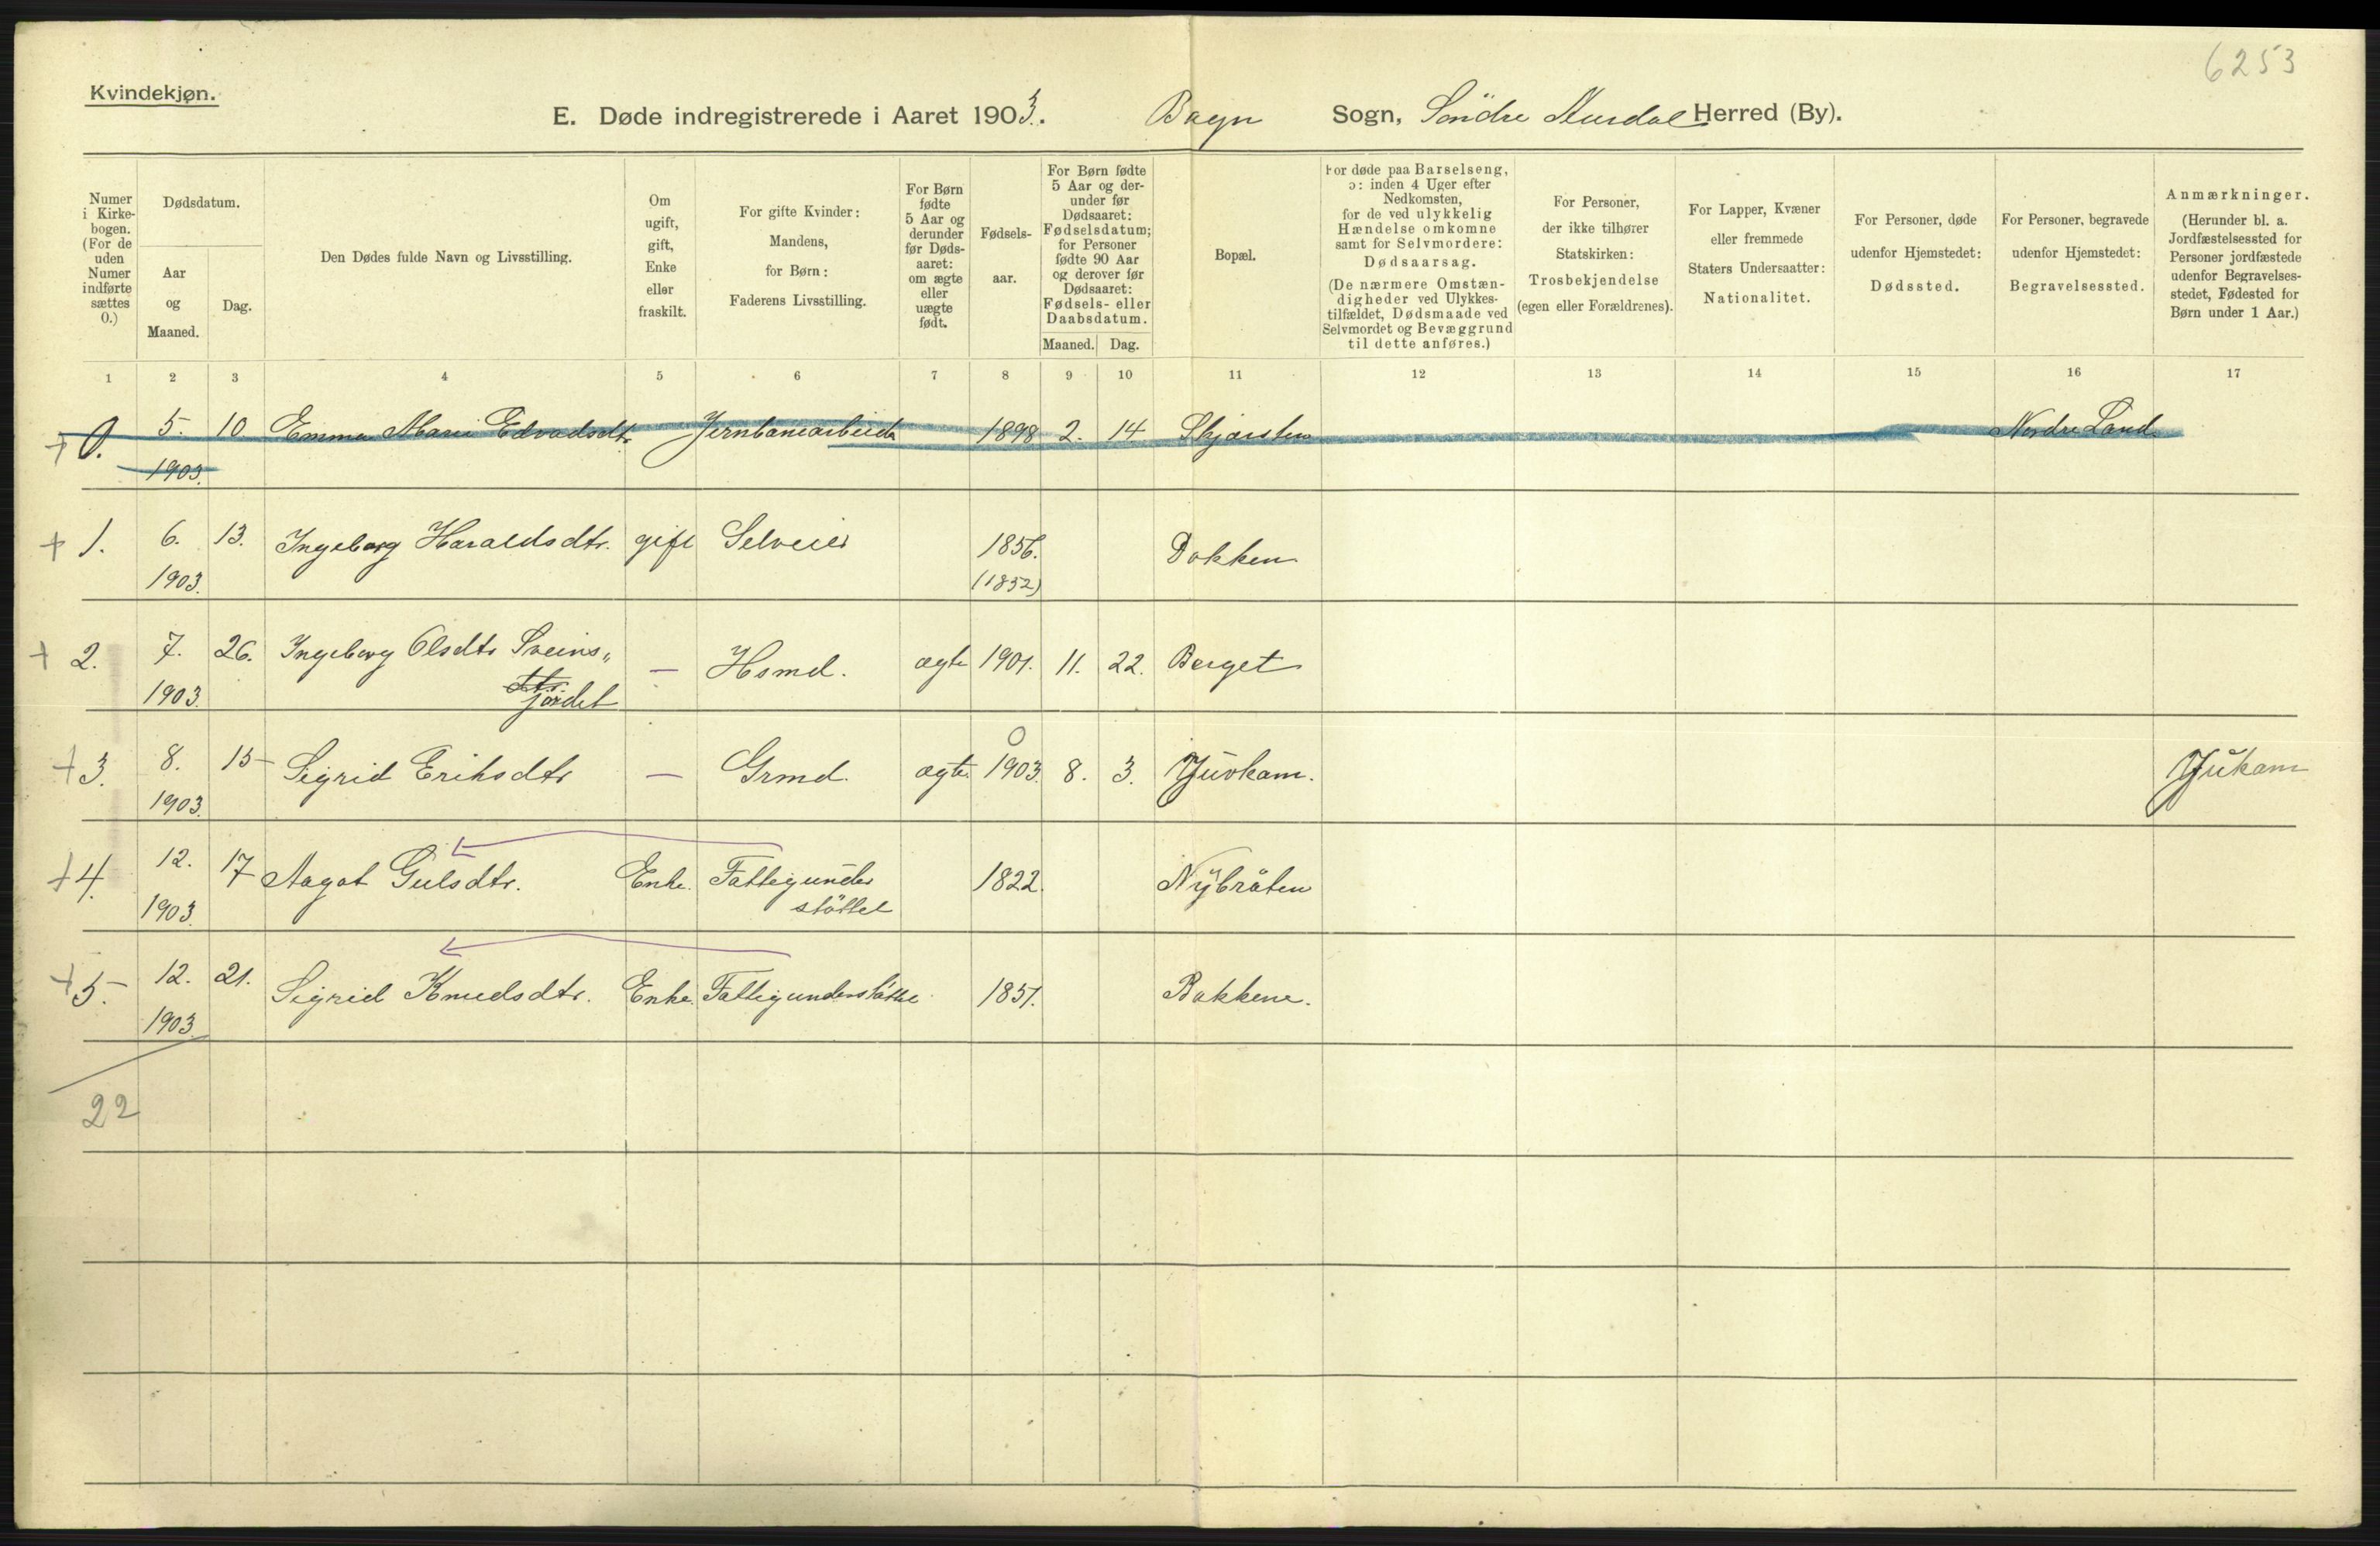 6253
Kvindekjøn.
E. Døde indregistrerede i Aaret 1903. Bagn Sogn, Søndre Aurdal Herred (By).
Numer i Kirkebogen. (For de uden Numer indførte sættes 0.)
Dødsdatum.
Aar og Maaned.
Dag.
Den Dødes fulde Navn og Livsstilling.
Om ugift, gift, Enke eller fraskilt.
For gifte Kvinder: Mandens, for Børn: Faderens Livsstilling.
For Børn fødte 5 Aar og derunder før Dødsaaret: om ægte eller uægte født.
Fødselsaar.
For Børn fødte 5 Aar og derunder før Dødsaaret: Fødselsdatum; for Personer fødte 90 Aar og derover før Dødsaaret: Fødsels- eller Daabsdatum.
Maaned. Dag.
Bopæl.
For døde paa Barselseng, ɔ: inden 4 Uger efter Nedkomsten, for de ved ulykkelig Hændelse omkomne samt for Selvmordere: Dødsaarsag.
(De nærmere Omstændigheder ved Ulykkestilfældet, Dødsmaade ved Selvmordet og Bevæggrund til dette anføres.)
For Personer, der ikke tilhører Statskirken: Trosbekjendelse (egen eller Forældrenes).
For Lapper, Kvæner eller fremmede Staters Undersaatter: Nationalitet.
For Personer, døde udenfor Hjemstedet: Dødssted.
For Personer, begravede udenfor Hjemstedet: Begravelsessted.
Anmærkninger. (Herunder bl. a. Jordfæstelsessted for Personer jordfæstede udenfor Begravelsesstedet, Fødested for Børn under 1 Aar.)
1 2 3 4 5 6 7 8 9 10 11 12 13 14 15 16 17
+ 0. 5. 10 Emma Marie Edvadsdtr. Jernbanearbeider 1898 2. 14 Skjarsten Nordre Land
1903.
+ 1. 6. 13. Ingeborg Haraldsdtr. gift Selveier 1856. Dokken
1903. (1852)
+ 2. 7. 26. Ingeborg Olsdtr Sveins„ — Hsmd. ægte 1901. 11. 22. Berget
1903. dtr. jordet
+ 3. 8. 15 Sigrid Eriksdtr — Grmd. ægte 1903. 8. 3. Juvkam. Jukam
1903.
+ 4. 12. 17 Aagot Gulsdtr. Enke. Fattigunder 1822. Nÿbråten
1903. støttet
+ 5. 12. 21. Sigrid Knudsdtr. Enke. Fattigunderstøtte 1851. Bakkene.
1903
22